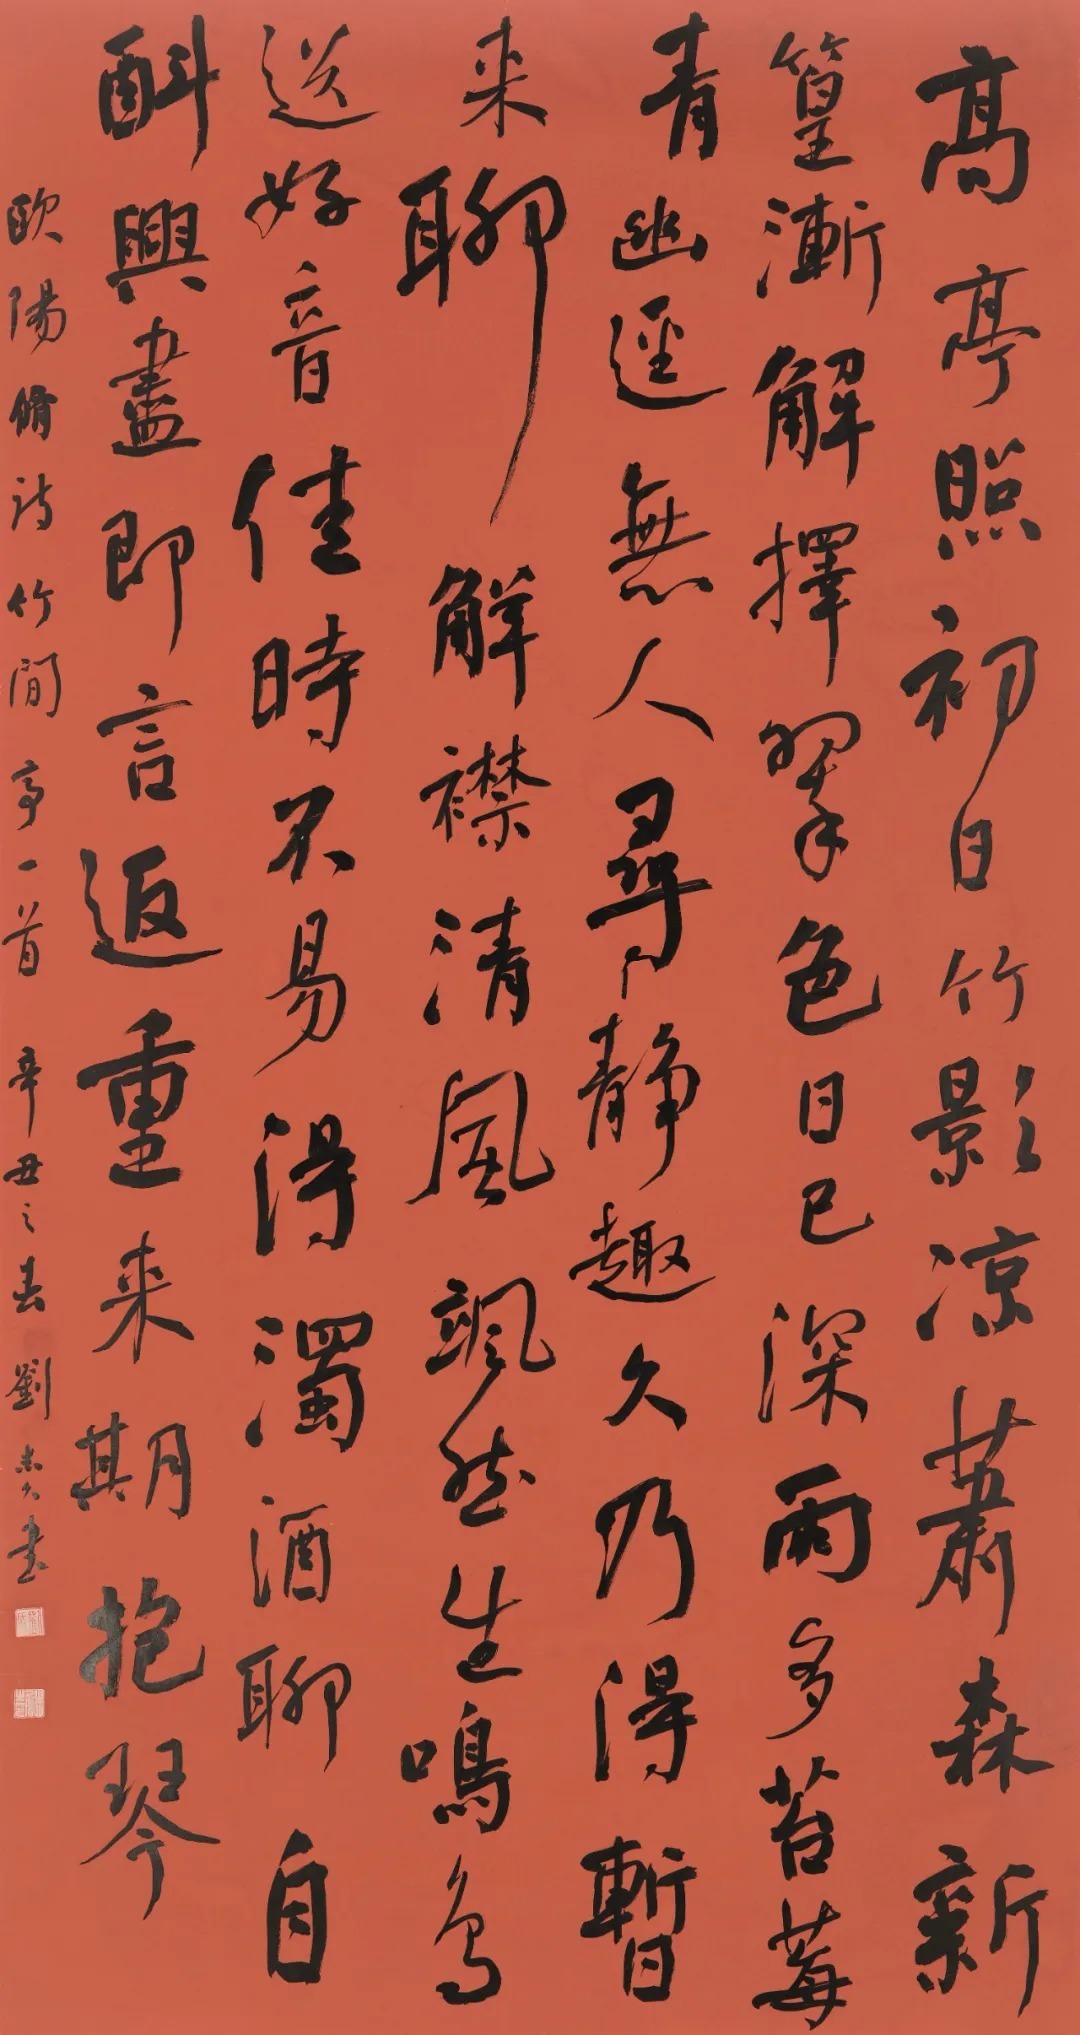 高亭照初日竹影涼蕭森新
篁漸解擇翠色日已深雨多苔莓
青幽逕無人尋靜趣久乃得暫
来聊解襟清風颯然生鳴鳥
送好音佳時不易得濁酒聊自
斟興盡即言返重来期抱琴
歐陽脩詩竹間亭一首辛丑之春劉書